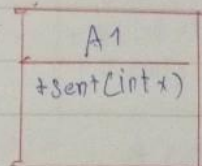 A1
+sent(int x)